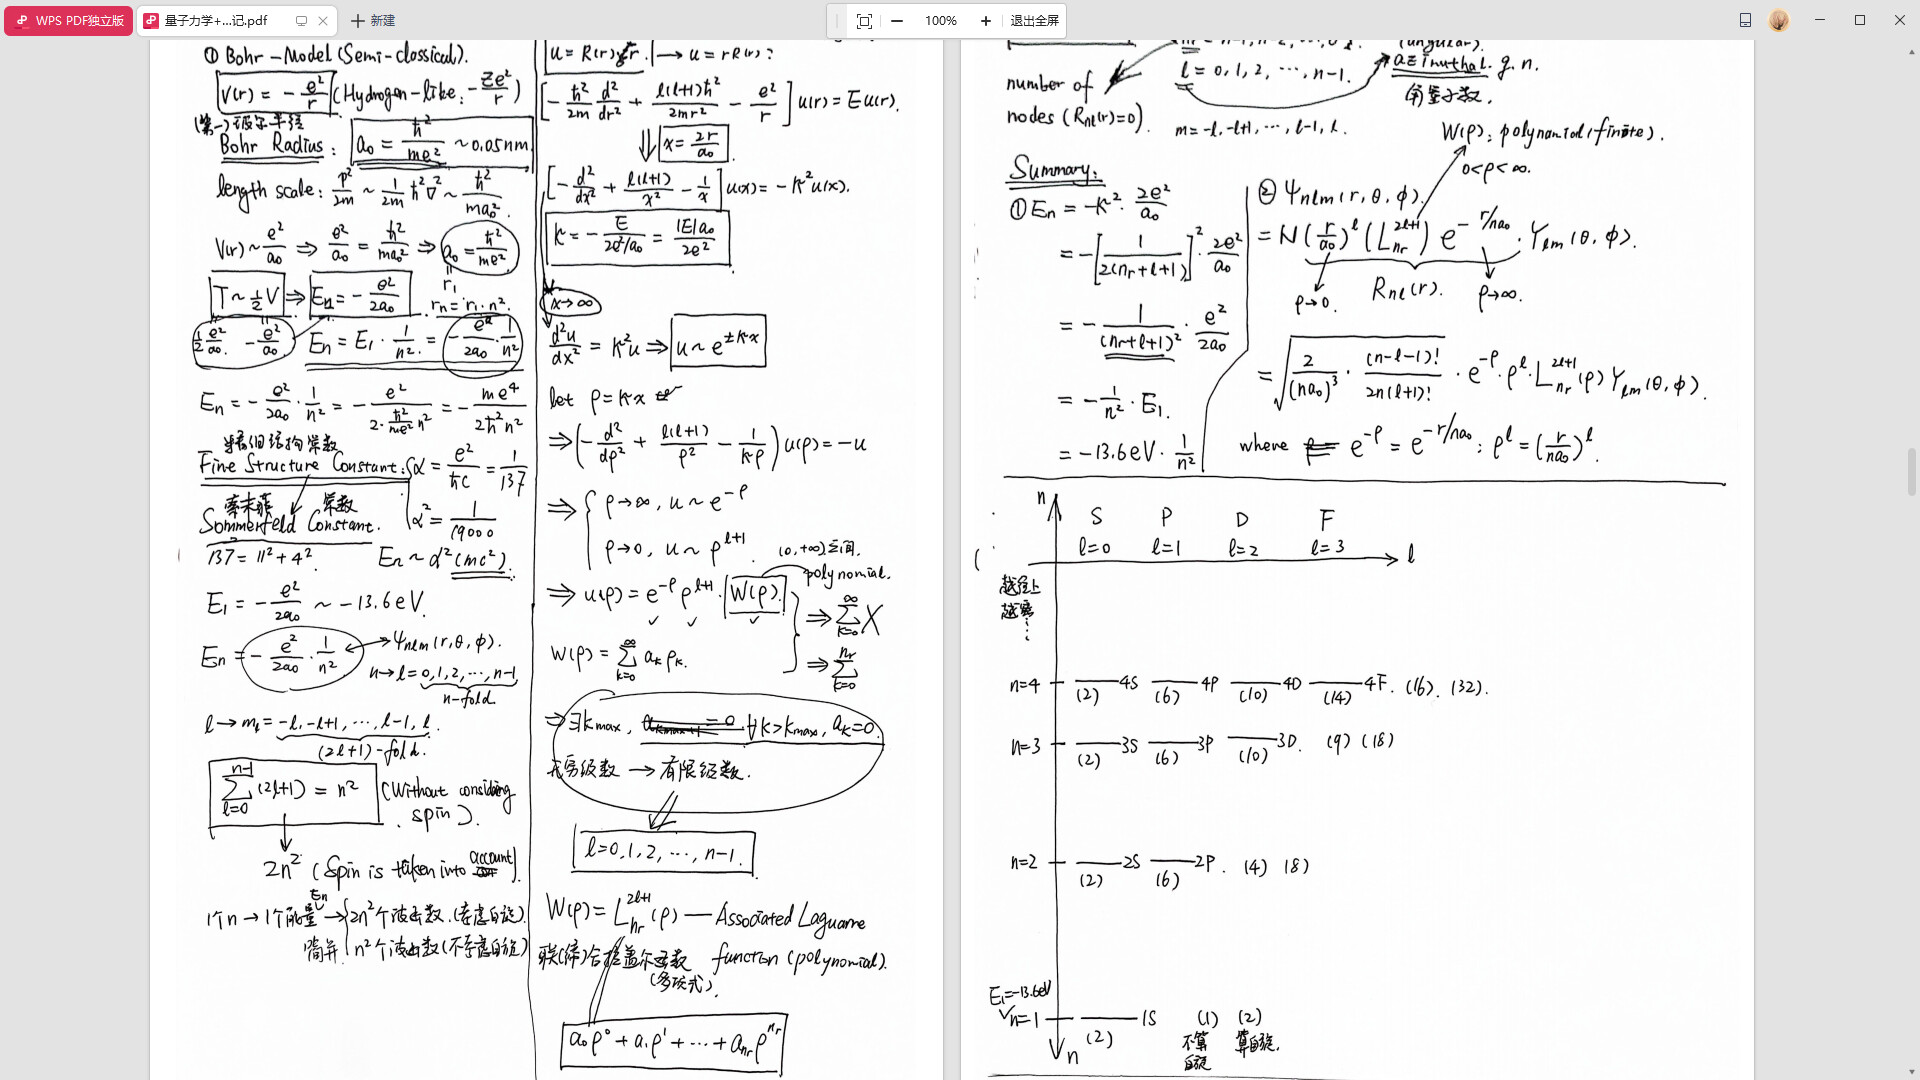 WPS PDF独立版
量子力学+...记.pdf
新建
100%
退出全屏
① Bohr-Model (Semi-classical).
V(r) = -e²/r (Hydrogen-like: -Ze²/r)
(第一)玻尔半径
Bohr Radius: a₀ = ħ²/me² ~ 0.05nm.
length scale: p²/2m ~ 1/2m ħ²∇² ~ ħ²/ma₀².
V(r) ~ e²/a₀ ⇒ e²/a₀ = ħ²/ma₀² ⇒ a₀ = ħ²/me²
r₁
T ~ ½V ⇒ En = -e²/2a₀ . rn = r₁·n².
½ e²/a₀ - e²/a₀ En = E₁·1/n² = -e²/2a₀·1/n²
En = -e²/2a₀·1/n² = -e²/(2·ħ²/me² n²) = -me⁴/2ħ²n²
精细结构常数
Fine Structure Constant: α = e²/ħc = 1/137
索末菲 常数
Sommerfeld Constant. α² = 1/19000
137 = 11²+4². En ~ α²(mc²).
E₁ = -e²/2a₀ ~ -13.6eV.
En = -e²/2a₀·1/n² → Ψnlm(r,θ,ϕ).
n→l=0,1,2,⋯,n-1
n-fold
l→ml=-l,-l+1,⋯,l-1,l.
(2l+1)-fold.
∑_{l=0}^{n-1}(2l+1) = n² (Without considering spin).
2n² (Spin is taken into account).
1个n → 1个能量 En → 2n²个波函数.(考虑自旋).
简并. n²个波函数(不考虑自旋)
u = R(r)·r. → u = rR(r)?
[-ħ²/2m d²/dr² + l(l+1)ħ²/2mr² - e²/r] u(r) = Eu(r).
⇓ x = 2r/a₀.
[-d²/dx² + l(l+1)/x² - 1/x] u(x) = -κ²u(x).
κ = -E/(2e²/a₀) = |E|a₀/2e²
x→∞
d²u/dx² = κ²u ⇒ u ~ e^{±κx}
let ρ = κx
⇒ (-d²/dρ² + l(l+1)/ρ² - 1/κρ) u(ρ) = -u
⇒ ρ→∞, u ~ e^{-ρ}
ρ→0, u ~ ρ^{l+1}. (0,+∞)空间.
polynomial.
⇒ u(ρ) = e^{-ρ} ρ^{l+1}·W(ρ). ⇒ ∑_{k=0}^{∞} X
W(ρ) = ∑_{k=0}^{∞} ak ρk. ⇒ ∑_{k=0}^{nr}
⇒ ∃kmax, ∀k>kmax, ak=0.
无穷级数 → 有限级数.
l=0,1,2,⋯,n-1.
W(ρ) = L_{nr}^{2l+1}(ρ) — Associated Laguarre
联(缔)合拉盖尔函数 function (polynomial).
(多项式).
a₀ρ⁰ + a₁ρ¹ + ⋯ + a_{nr}ρ^{nr}
(angular).
number of l=0,1,2,⋯,n-1. azimuthal. q.n.
nodes (Rnl(r)=0). 角量子数.
m=-l,-l+1,⋯,l-1,l.
W(ρ): polynomial (finite).
0<ρ<∞.
Summary:
① En = -κ²·2e²/a₀
= -[1/2(nr+l+1)]²·2e²/a₀
= -1/(nr+l+1)²·e²/2a₀
= -1/n²·E₁.
= -13.6eV·1/n²
② Ψnlm(r,θ,ϕ).
= N(r/a₀)^l (L_{nr}^{2l+1}) e^{-r/na₀}·Ylm(θ,ϕ).
ρ→0. Rnl(r). ρ→∞.
= √(2/(na₀)³·(n-l-1)!/2n(l+1)!)·e^{-ρ}·ρ^l·L_{nr}^{2l+1}(ρ) Ylm(θ,ϕ).
where e^{-ρ} = e^{-r/na₀}; ρ^l = (r/na₀)^l.
n S P D F
l=0 l=1 l=2 l=3 l
越往上
越密
⋮
n=4 4S 4P 4D 4F. (16). (32).
(2) (6) (10) (14)
n=3 3S 3P 3D. (9) (18)
(2) (6) (10)
n=2 2S 2P. (4) (8)
(2) (6)
E₁=-13.6eV
n=1 1S (1) (2)
(2) 不算自旋 算自旋.
n